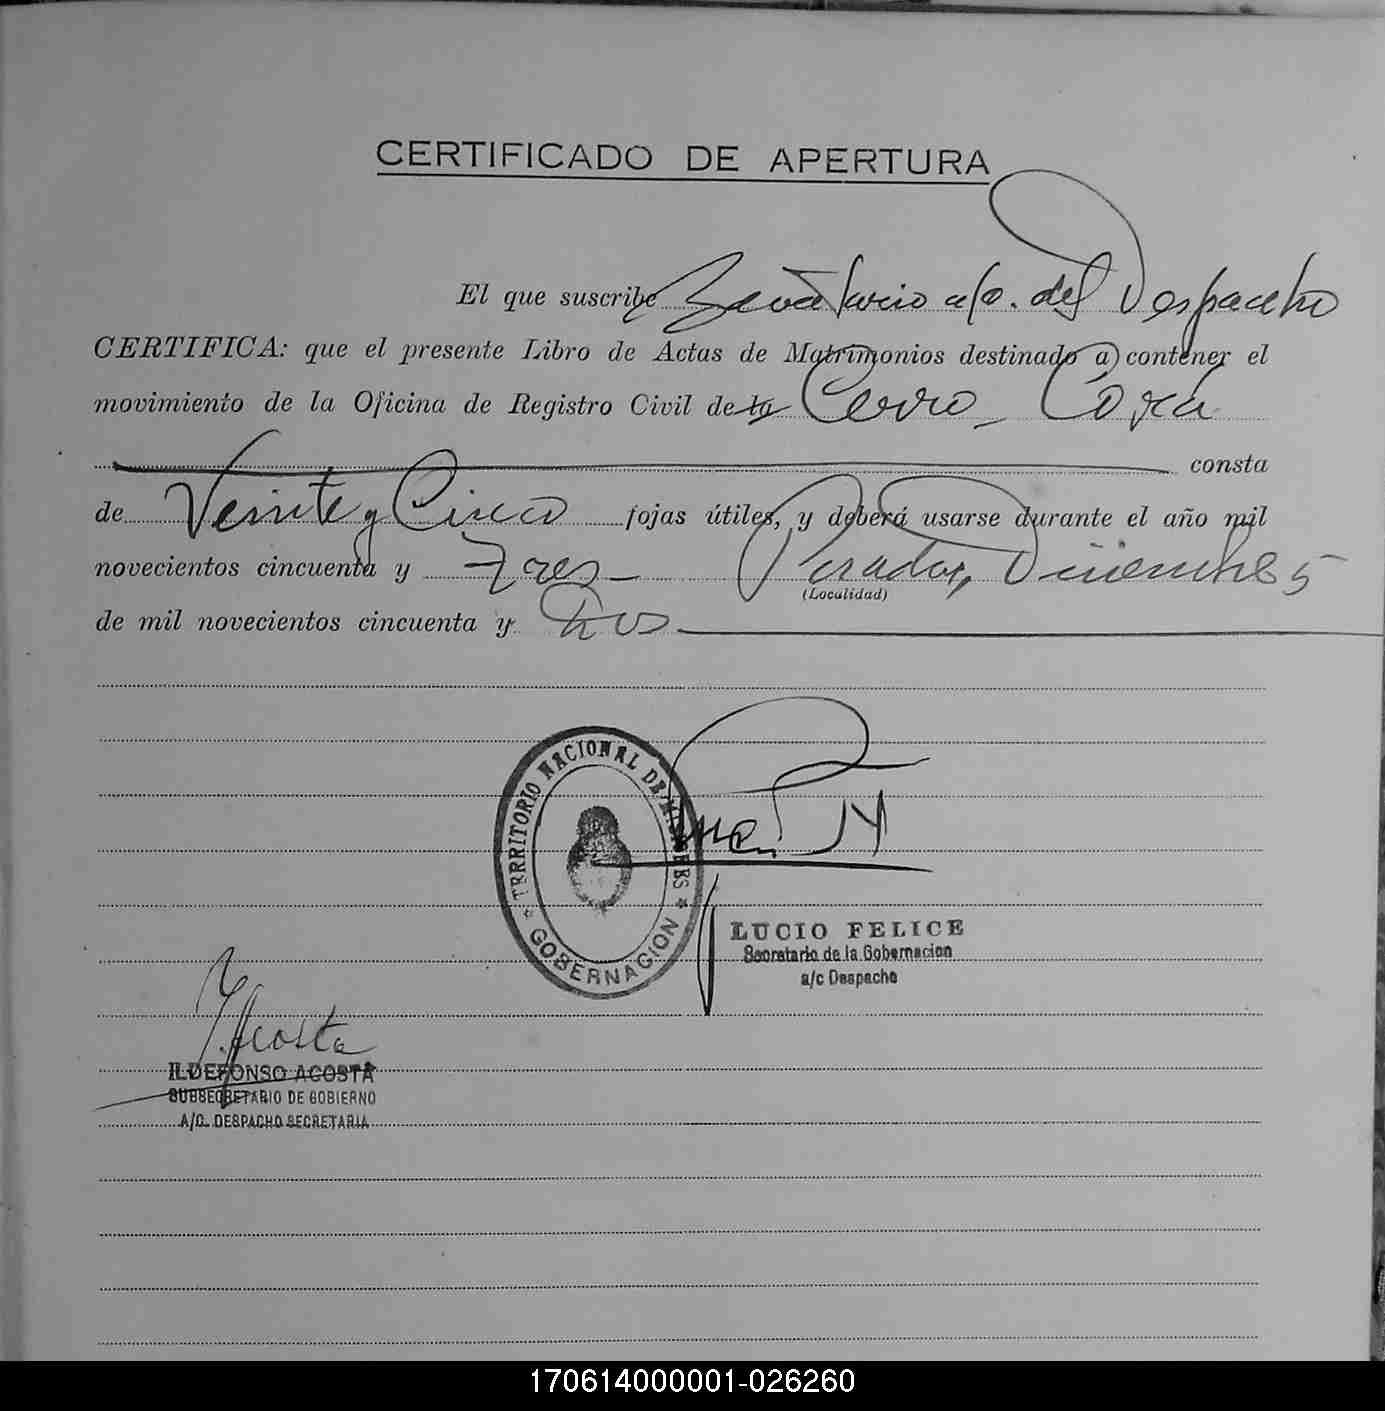 CERTIFICADO DE APERTURA
El que suscribe Secretario a/c. del Despacho
CERTIFICA: que el presente Libro de Actas de Matrimonios destinado a contener el
movimiento de la Oficina de Registro Civil de la Cerro Corá
consta
de Veinte y Cinco fojas útiles, y deberá usarse durante el año mil
novecientos cincuenta y Tres Posadas, Diciembre 5
(Localidad)
de mil novecientos cincuenta y Dos
TERRITORIO NACIONAL DE MISIONES
GOBERNACION
LUCIO FELICE
Secretario de la Gobernacion
a/c Despacho
Acosta
ILDEFONSO ACOSTA
SUBSECRETARIO DE GOBIERNO
A/C. DESPACHO SECRETARIA
170614000001-026260